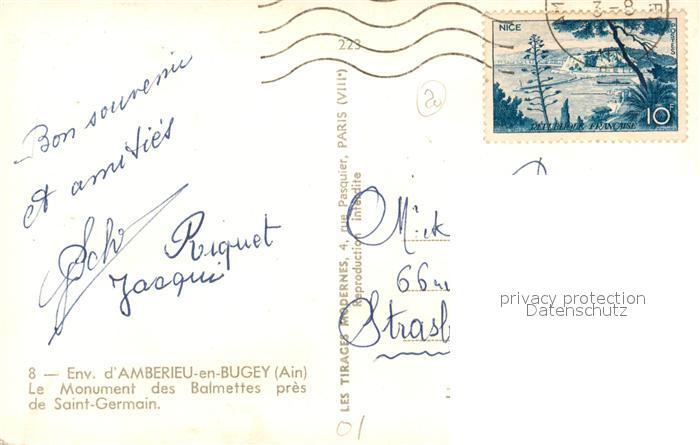 Bon souvenir
et amitiés
Sch
Riquet
Jacqui
8 — Env. d'AMBERIEU-en-BUGEY (Ain)
Le Monument des Balmettes près
de Saint-Germain.
223
LES TIRAGES MODERNES, 4, rue Pasquier, PARIS (VIIIe)
Reproduction interdite
20
NICE
POSTES
10F
RÉPUBLIQUE FRANÇAISE
Mick
66
Strasb
privacy protection
Datenschutz
01